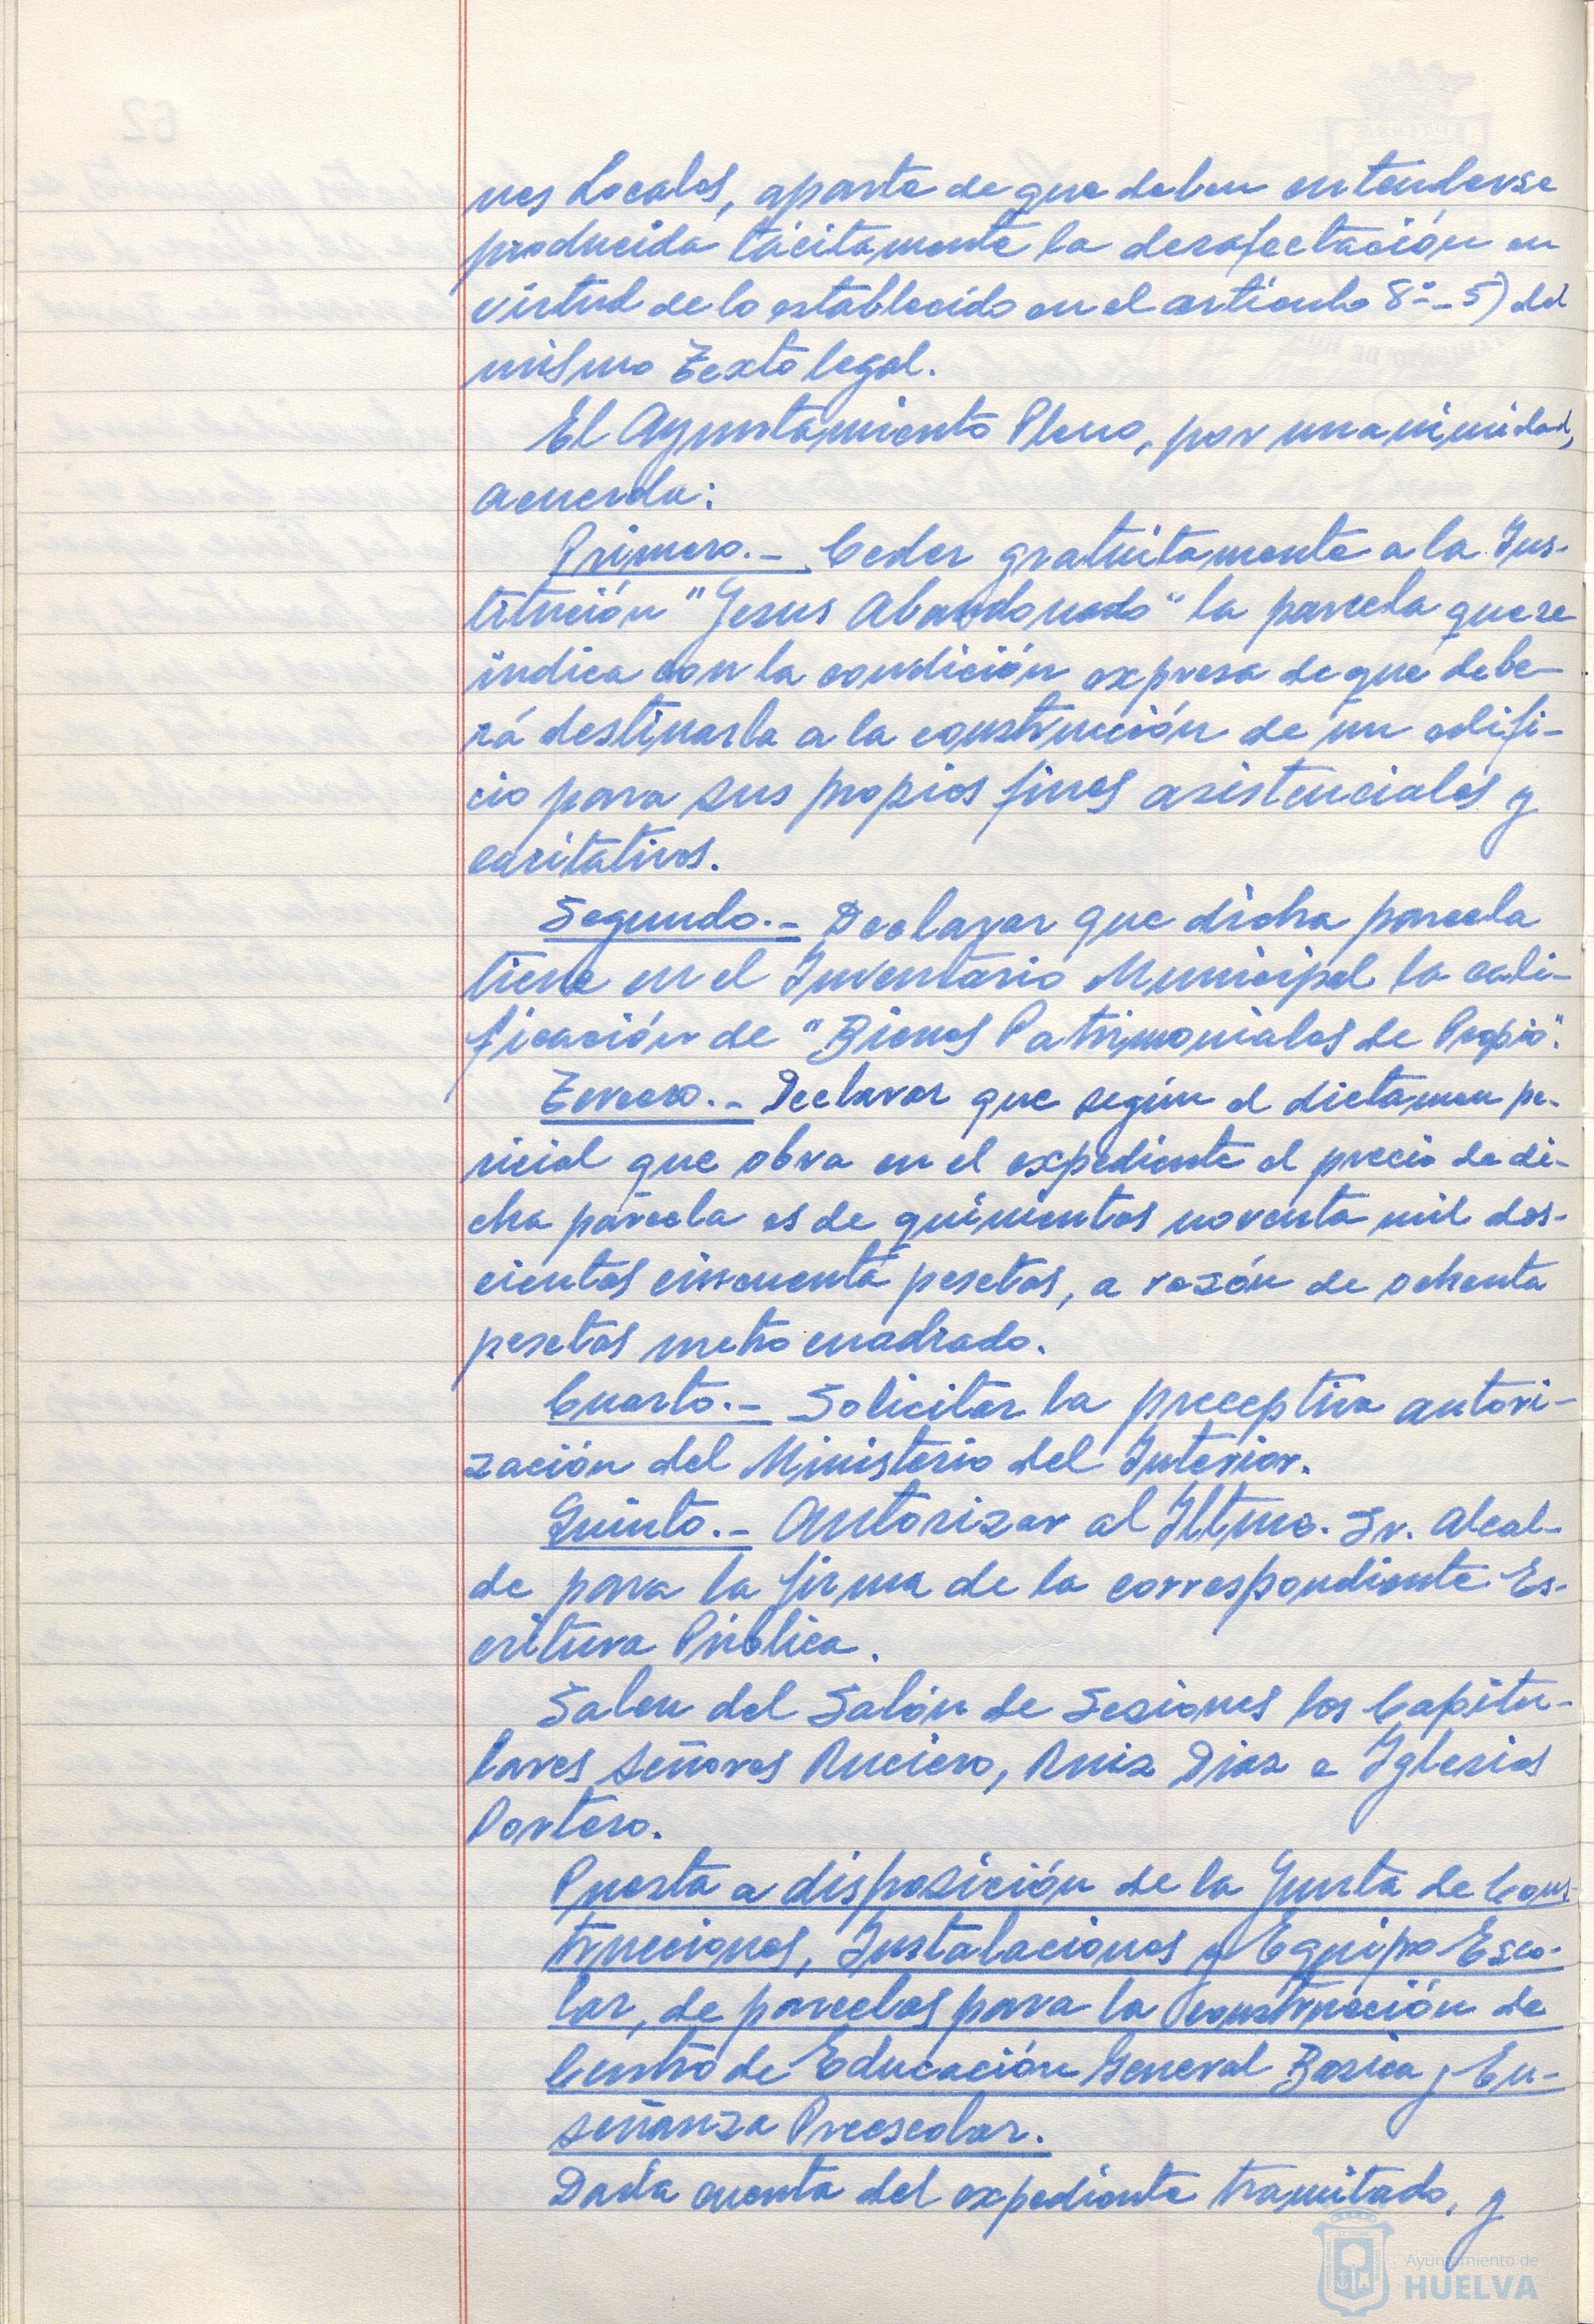 nes Locales, aparte de que deben entenderse
producida tácitamente la desafectación en
virtud de lo establecido en el artículo 8º-5) del
mismo Texto legal.
El Ayuntamiento Pleno, por unanimidad,
acuerda:
Primero.- Ceder gratuitamente a la Ins-
titución "Jesus Abandonado" la parcela que se
indica con la condición expresa de que debe-
rá destinarla a la construcción de un edifi-
cio para sus propios fines asistenciales y
caritativos.
Segundo.- Declarar que dicha parcela
tiene en el Inventario Municipal la cali-
ficación de "Bienes Patrimoniales de Propio".
Tercero.- Declarar que según el dictamen pe-
ricial que obra en el expediente el precio de di-
cha parcela es de quinientas noventa mil dos-
cientas cincuenta pesetas, a razón de ochenta
pesetas metro cuadrado.
Cuarto.- Solicitar la preceptiva autori-
zación del Ministerio del Interior.
Quinto.- Autorizar al Iltmo. Sr. Alcal-
de para la firma de la correspondiente Es-
critura Pública.
Salen del Salón de Sesiones los Capitu-
lares señores Ruciero, Ruiz Diaz e Iglesias
Portero.
Puesta a disposición de la Junta de Cons-
trucciones, Instalaciones y Equipo Esco-
lar, de parcelas para la construcción de
Centro de Educación General Basica y En-
señanza Preescolar.
Dada cuenta del expediente tramitado, y
Ayuntamiento de
HUELVA